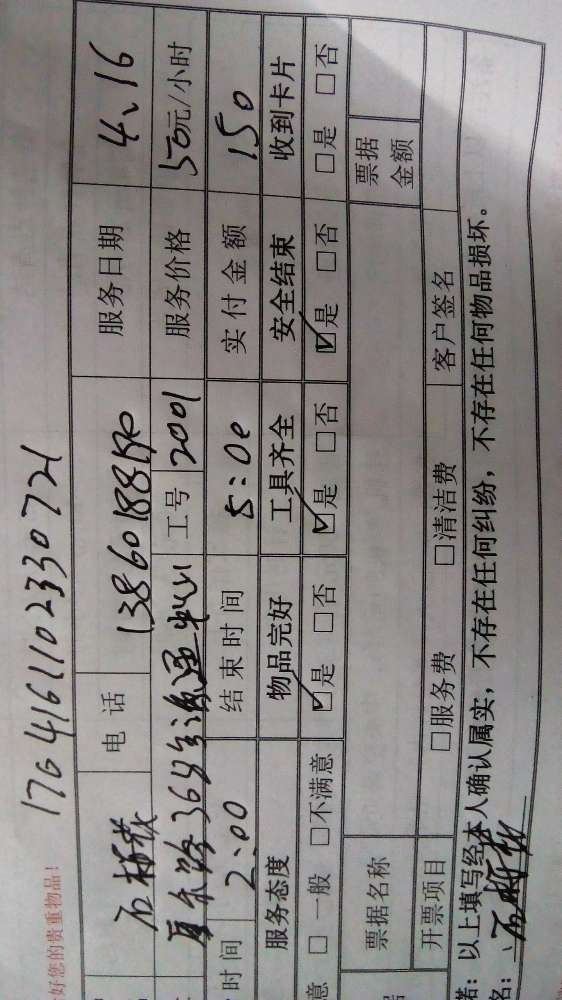 好您的贵重物品!
1704161102330721
电话 服务日期 4、16
工号 2001 服务价格 50元/小时
时间 2:00 结束时间 5:00 实付金额 150
服务态度 物品完好 工具齐全 安全结束 收到卡片
意 □ 一般 □不满意 ☑是 □否 ☑是 □否 ☑是 □否 □是 □否
票据名称 票据金额
开票项目 □服务费 □清洁费 客户签名
诺: 以上填写经本人确认属实,不存在任何纠纷,不存在任何物品损坏。
名: